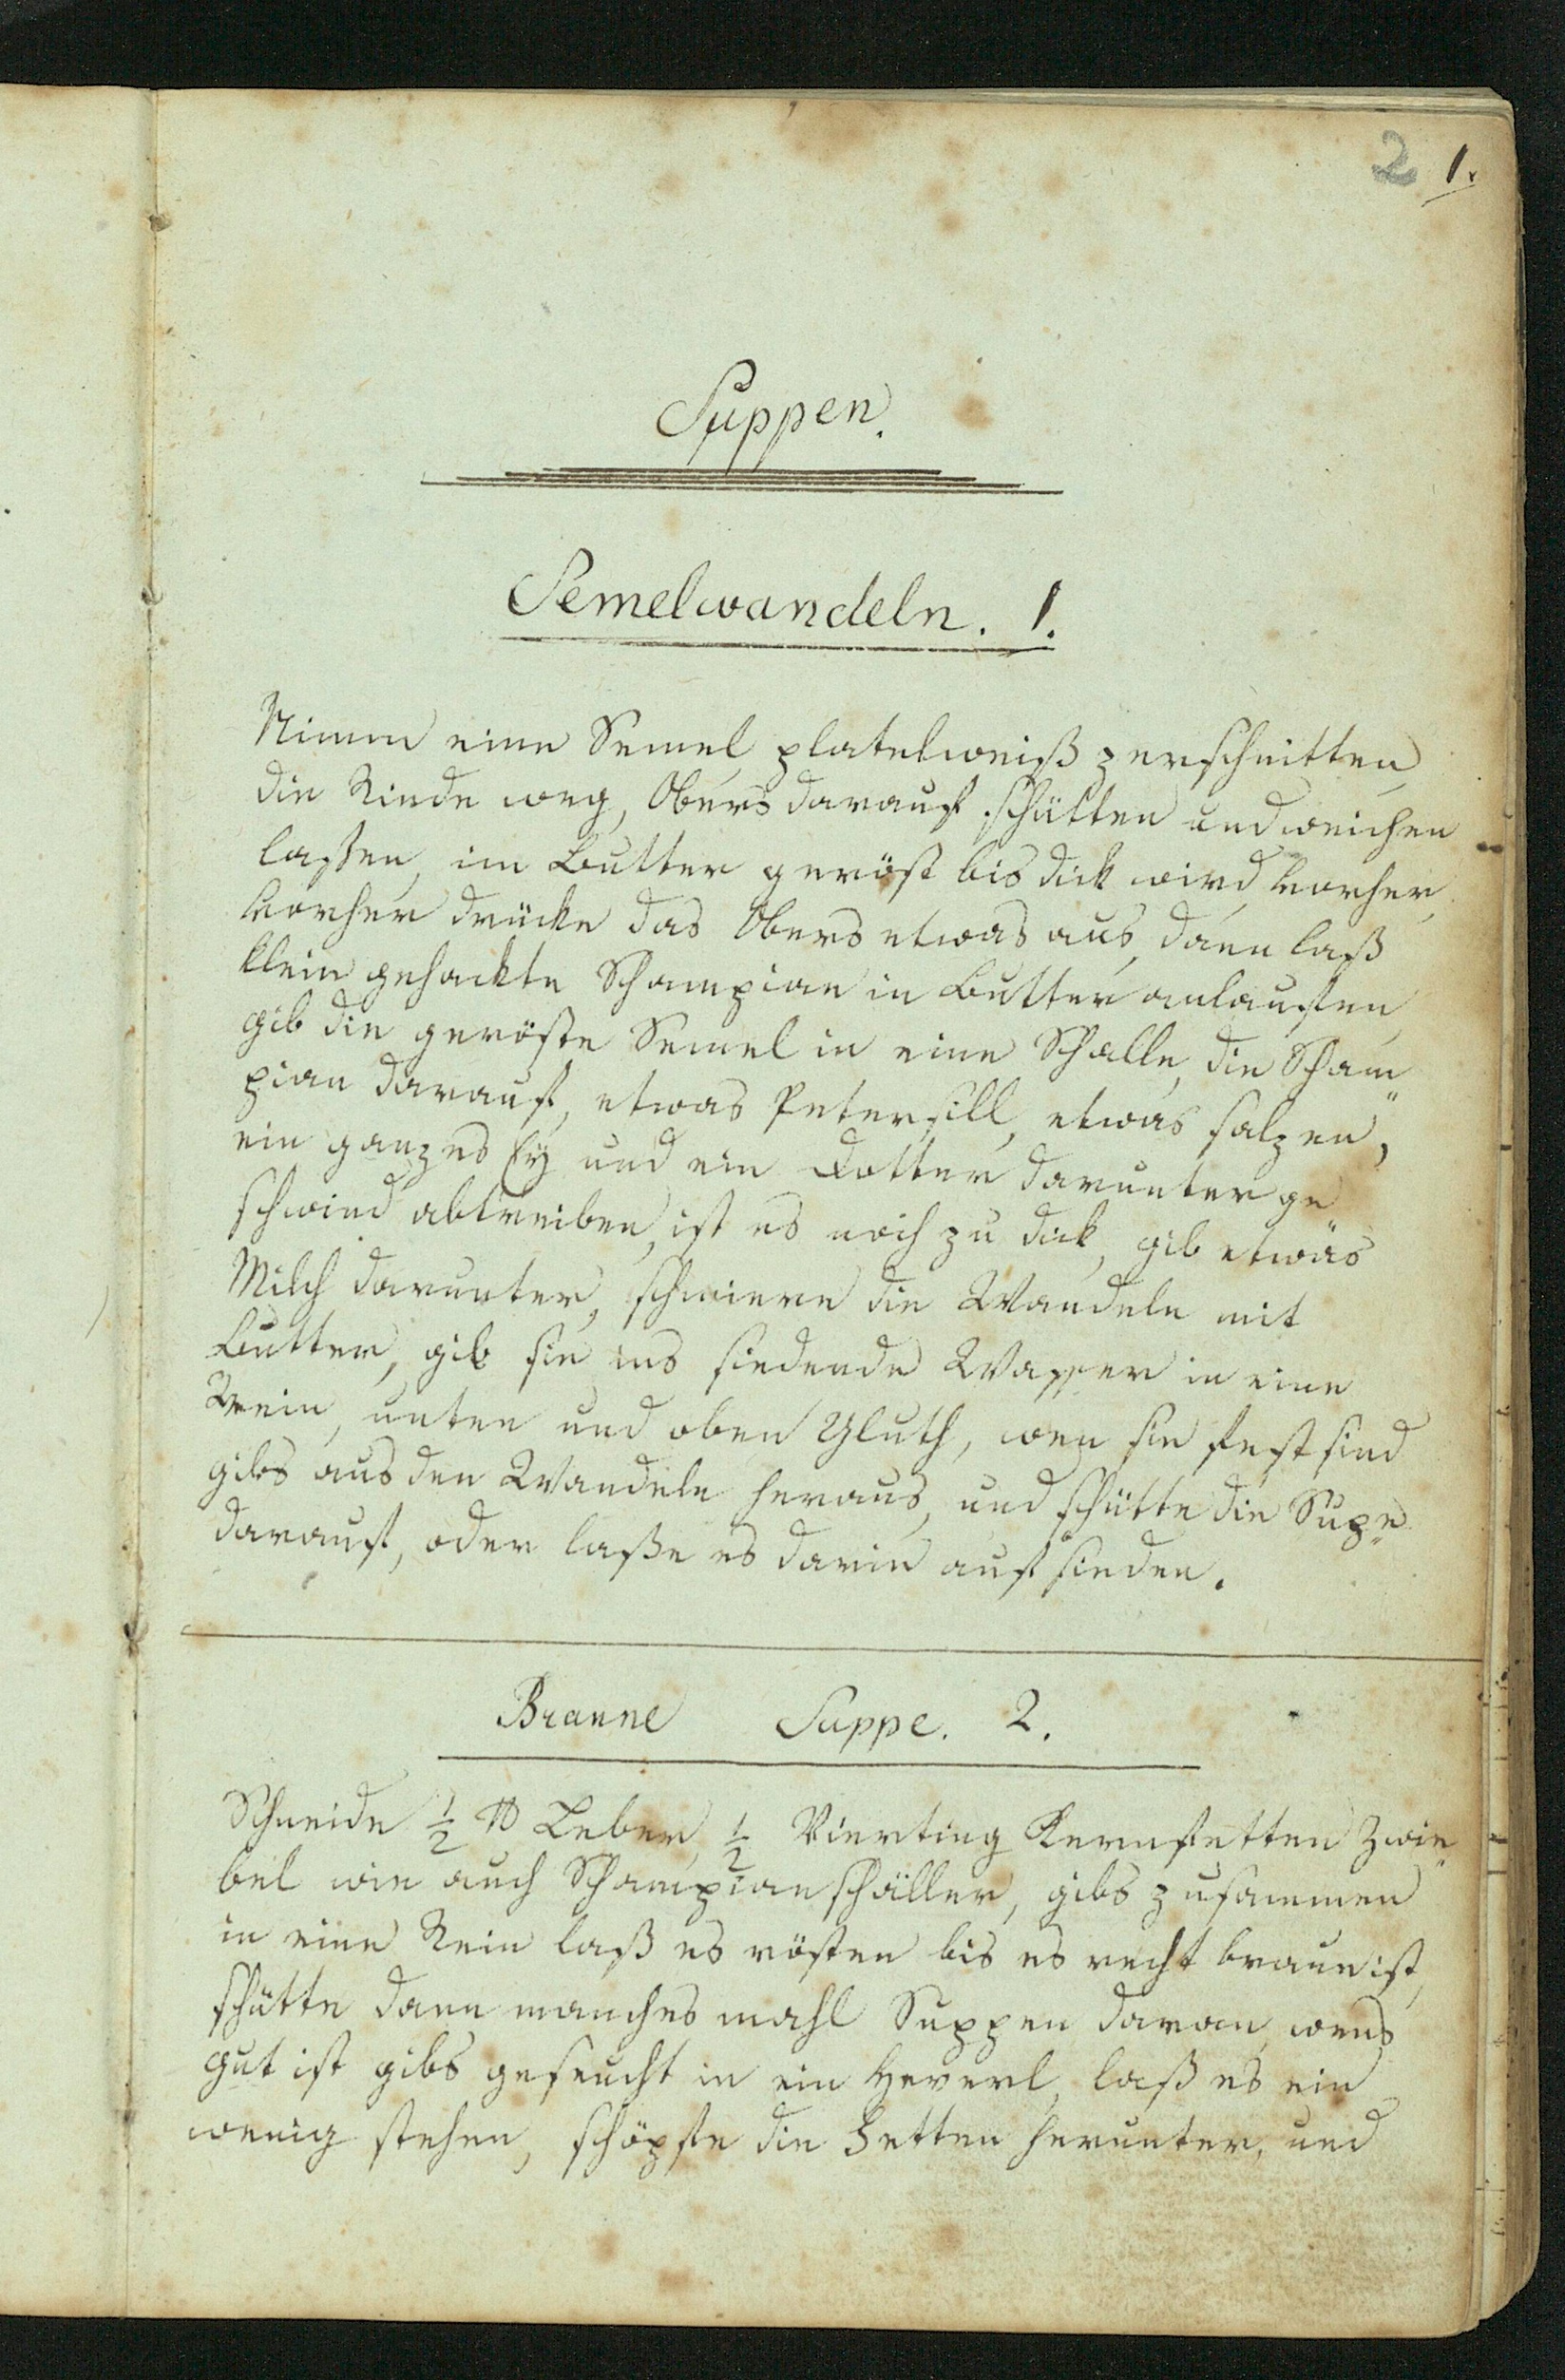 2 1.
Suppen.
Semelwandeln. 1.
Nimm eine Semel platelweiß zerschnitten
die Rinde weg, Obers darauf schütten und weichen
laßen, im Butter geröst bis dick wird, vorher
vorher drücke das Obers etwas aus, dann laß
klein gehackte Schampian in Butter anlaufen
gib die geröste Semel in eine Schalle, die Scham"
pian darauf, etwas Petersill, etwas salzen,
ein ganzes Ey und ein Dotter darunter ge
schwind abtreiben, ist es noch zu dick, gib etwas
Milch darunter, schmiere die Wandeln mit
Butter, gib sie ins siedende Wasser in eine
Rein, unten und oben Gluth, wen sie fest sind
gibs aus den Wandeln heraus, und schütte die Supe
darauf, oder laße es darin auf sieden.
Braune Suppe. 2.
Schneide ½ ℔ Leber, ½ Vierting Kernfetten Zwie"
bel wie auch Schampianschäller, gibs zusammen
in eine Rein laß es rösten bis es recht braun ist,
schütte dann manches mahl Suppen daran, wens
gut ist gibs geseucht in ein Heverl, laß es ein
wenig stehen, schöpfe die Fetten herunter, und